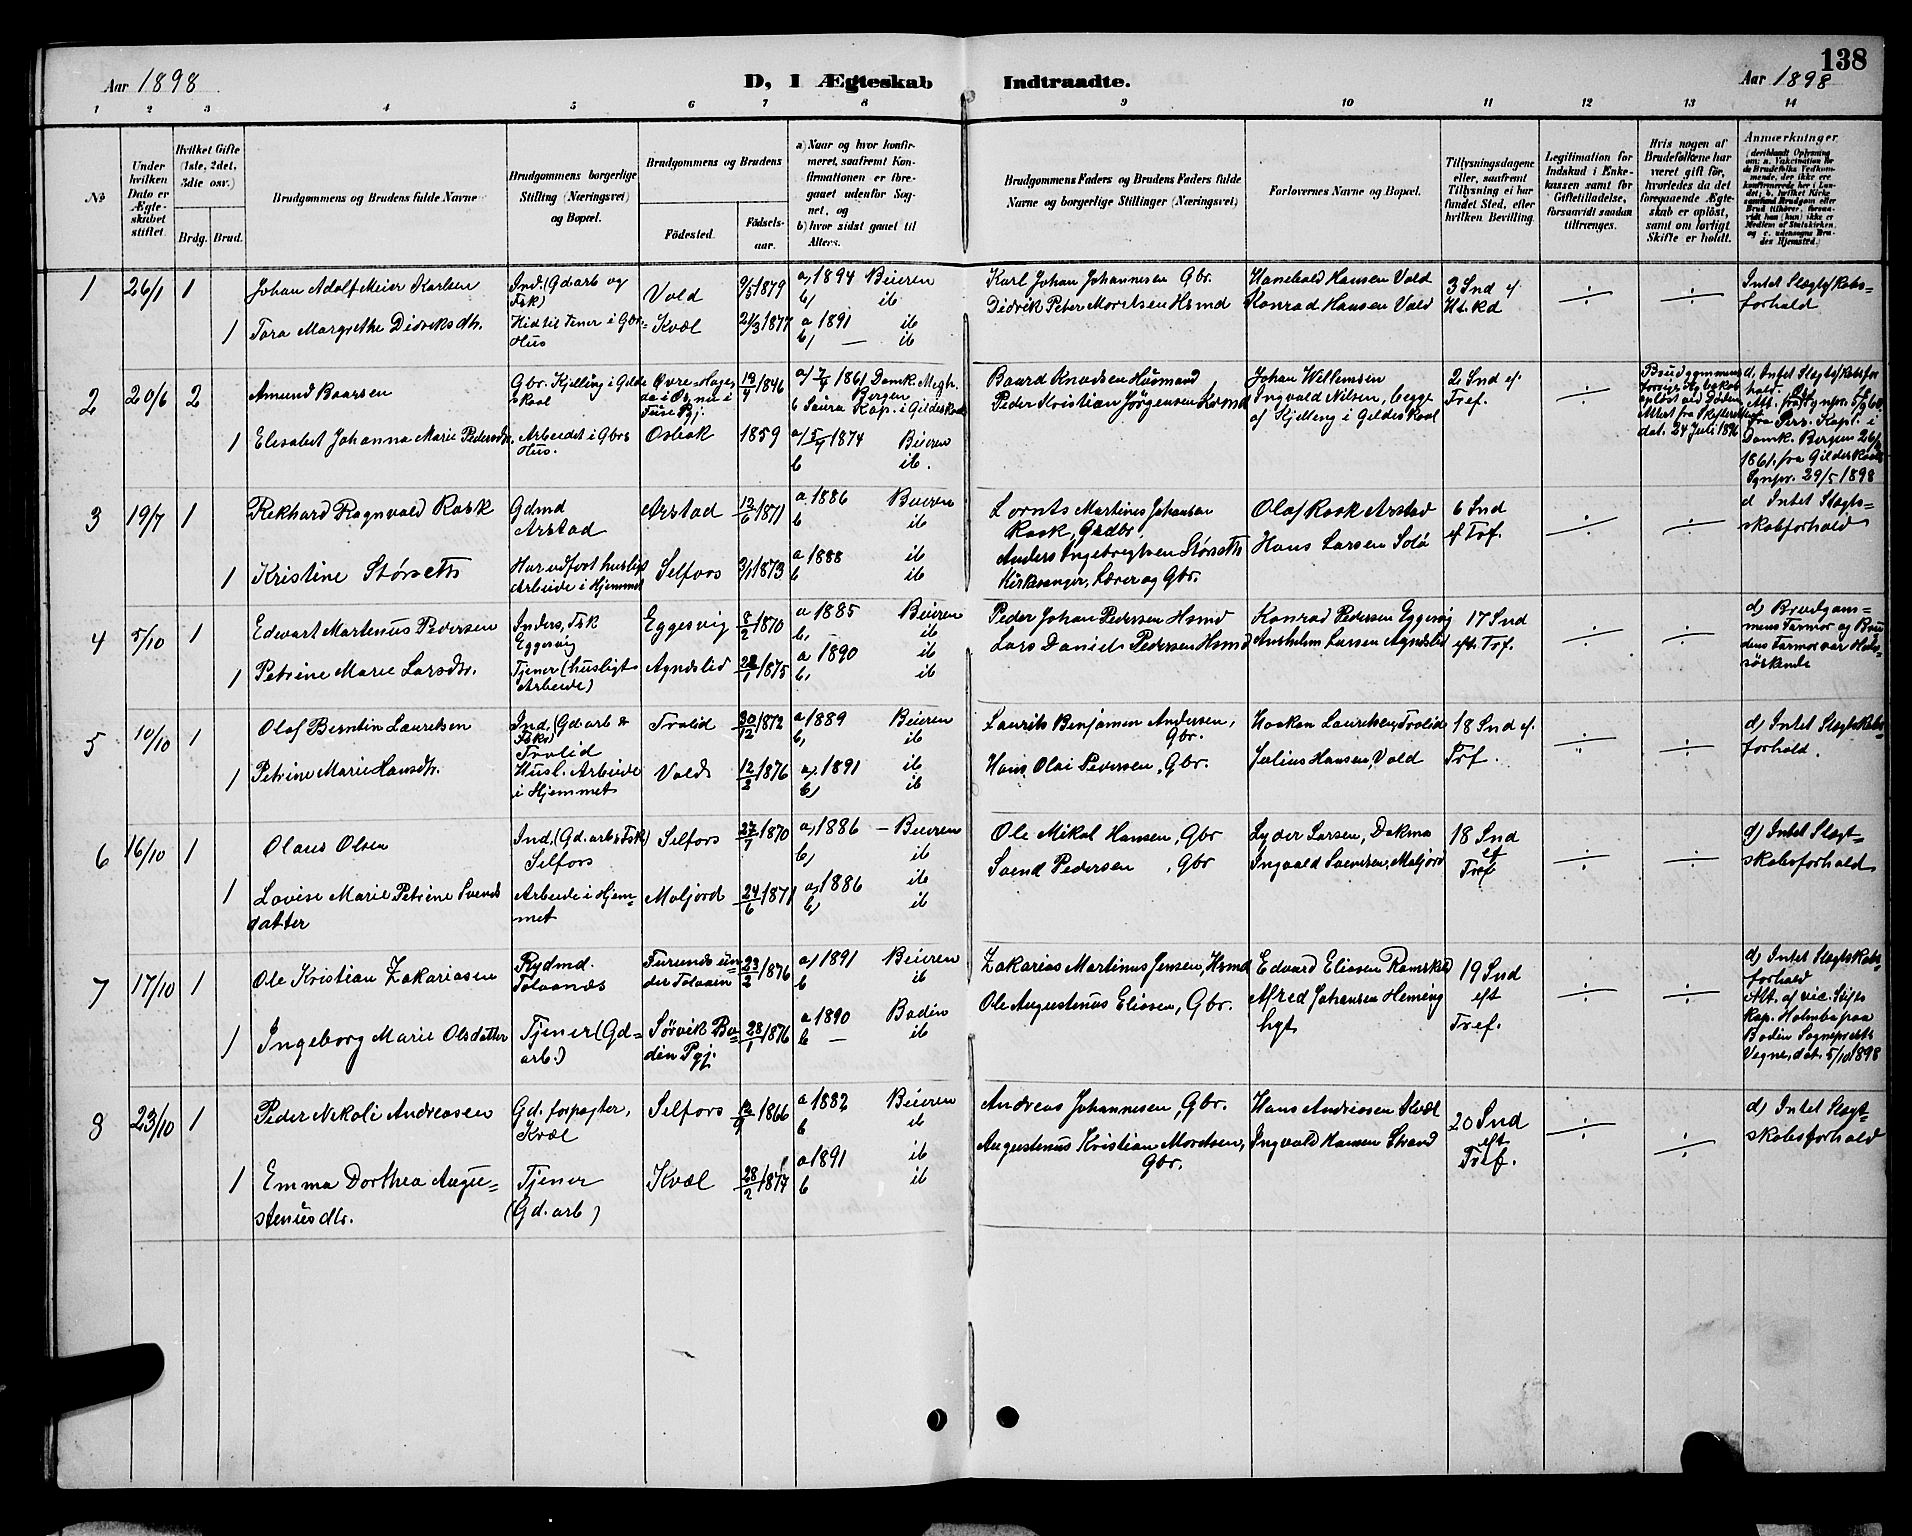 138
Aar 1898
D, I Ægteskab Indtraadte.
Aar 1898
1 2 3 4 5 6 7 8 9 10 11 12 13 14
No
Under hvilken Dato er Ægteskabet stiftet.
Hvilket Gifte (1ste, 2det, 3die osv.)
Brdg. Brud.
Brudgommens og Brudens fulde Navne
Brudgommens borgerlige Stilling (Næringsvei) og Bopæl.
Brudgommens og Brudens
Fødested. Fødselsaar.
a) Naar og hvor konfirmeret, saafremt Konfirmationen er foregaaet udenfor Sognet, og
b) hvor sidst gaaet til Alters.
Brudgommens Faders og Brudens Faders fulde Navne og borgerlige Stillinger (Næringsvei)
Forlovernes Navne og Bopæl.
Tillysningsdagene eller, saafremt Tillysning ei har fundet Sted, efter hvilken Bevilling.
Legitimation for Indskud i Enkekassen samt for Giftetilladelse, forsaavidt saadan tiltrænges.
Hvis nogen af Brudefolkene har været gift før, hvorledes da det foregaaende Ægteskab er opløst, samt om lovligt Skifte er holdt.
Anmærkninger
1 26/1 1 Johan Adolf Meier Karlsen
Ind. (Gd arb og Fsk)
Vold 9/5 1879
a) 1894 Beieren
b) ib
Karl Johan Johannesen Gbr.
Hanebald Hansen Vold
3 Snd e/. Ht. kd
÷ ÷
Intet Slægtskabsforhold
1 Tora Margrethe Didriksdtr.
Hidtil Tener i Gbr. Hus
Kvæl 21/3 1877
a 1891 ib
b) — ib
Didrik Peter Moretsen Hsmd
Konrad Hansen Vold
2 20/6 2 Amund Baarsen
Gbr. Kjelling i Gildeskaal
Øvre-Hagen
1846
a) 1861 Domk. Megh. Bergen
b Saura Kap. i Gildeskaal
Baard Knudsen Husmand
Johan Willemsen
Ingvald Nilsen, begge af Kjelling i Gildeskaal
2 Snd e/. Tref.
÷
dat. 24 Juli 1896
d. Intet Slægtskabsforhold
1861. fra Gildeskaals Sgnpr. 29/5 1898
1 Elisabet Johanna Marie Pedersdtr.
Arbeidet i Gbrs Hus.
Osbak 1859
a) 5/7 1874 Beieren
b ib.
Peder Kristian Jørgensen
3 19/7 1 Rikhard Ragnvald Rask
Gdmd Arstad
Arstad 13/6 1871
a 1886 Beieren
b ib
Lornts Martinus Johansen Rask, Gadbr.
Olaf Rask Arstad
6 Snd ef Trf.
÷ ÷
d Intet Slægtskabforhold
1 Kristine Størseth
Har udført husligt Arbeide i Hjemmet
Selfors 3/1 1873
a 1888 ib
b ib
Anders Ingebregtsen Størseth Kirkesanger, Lærer og Gbr.
Hans Larsen Solø
4 5/10 1 Edvart Martenus Pedersen
Inders, Fsk Eggesvig
Eggesvig 8/2 1870
a 1885 Beieren
b, ib
Peder Johan Pedersen Hsmd
Konrad Pedersen Eggesvig
17 Snd eft. Trf.
÷ ÷
d) Brudgommens Farmor og Brudens Farmor var Halvsøskende
1 Petrine Marie Larsdtr.
Tjener (husligt Arbeide)
Agneslid 1875
a 1890 ib
b, ib
Lars Daniel Pedersen Hsmd
Anshelm Larsen Agneslid
5 10/10 1 Olaf Berntin Lauritsen
Ind. (Gd arb & Fsk) Trolid
Trolid 30/12 1872
a 1889 Beieren
b, ib
Laurits Benjamin Andersen, Gbr.
Haakon Lauritsen, Trolid
18 Snd e/. Trf.
÷ ÷
d) Intet Slægtskabsforhold.
1 Petrine Marie Hansdtr.
Husl. Arbeide i Hjemmet
Vold 12/2 1876
a, 1891 ib
b, ib
Hans Olai Pedersen, Gbr.
Julius Hansen, Vold
6 16/10 1 Olaus Olsen
Ind. (Gd. arb & Fsk) Selfors
Selfors 27/7 1870
a) 1886 – Beieren
b) ib
Ole Mikal Hansen, Gbr
Lyder Larsen, Dokmo
18 Snd eft Tref
÷ ÷
d) Intet Slægtskabsforhold
1 Lovise Marie Petrine Svendsdatter
Arbeide i Hjemmet
Moljord 24/6 1871
a, 1886 ib
b, ib
Svend Pedersen, Gbr
Ingvald Svendsen, Moljord
7 17/10 1 Ole Kristian Zakariasen
Rydmd. Tolvanæs
23/2 1876
a) 1891 Beieren
b ib
Zakarias Martinus Jensen, Hsmd
Edvard Eliasen Ramskel
19 Snd eft Tref.
÷ ÷
d) Intet Slægtskabsforhold
Att. af vic. Stifts Kap. Holmbo paa Bodin Sogneprests Vegne, dat. 5/10 1898
1 Ingeborg Marie Olsdatter
Tjener (Gd=arb.)
Sørvik Bodin Pgj.
28/1 1876
a 1890 Bodin
b — ib
Ole Augustenus Eliasen, Gbr.
Alfred Johansen Heminghyt
8 23/10 1 Peder Nikoli Andreasen
Gd. forpagter, Kvæl
Selfors 1866
a 1882 Beieren
b ib
Andreas Johannesen, Gbr.
Hans Andreasen Kvæl
20 Snd eft Tref.
÷ ÷
d) Intet Slægtskabsforhold
1 Emma Dorthea Augustenusdtr.
Tjener (Gd. arb)
Kvæl 28/2 1877
a 1891 ib
b ib
Augustenus Kristian Moretsen, Gbr.
Ingvald Hansen Strand